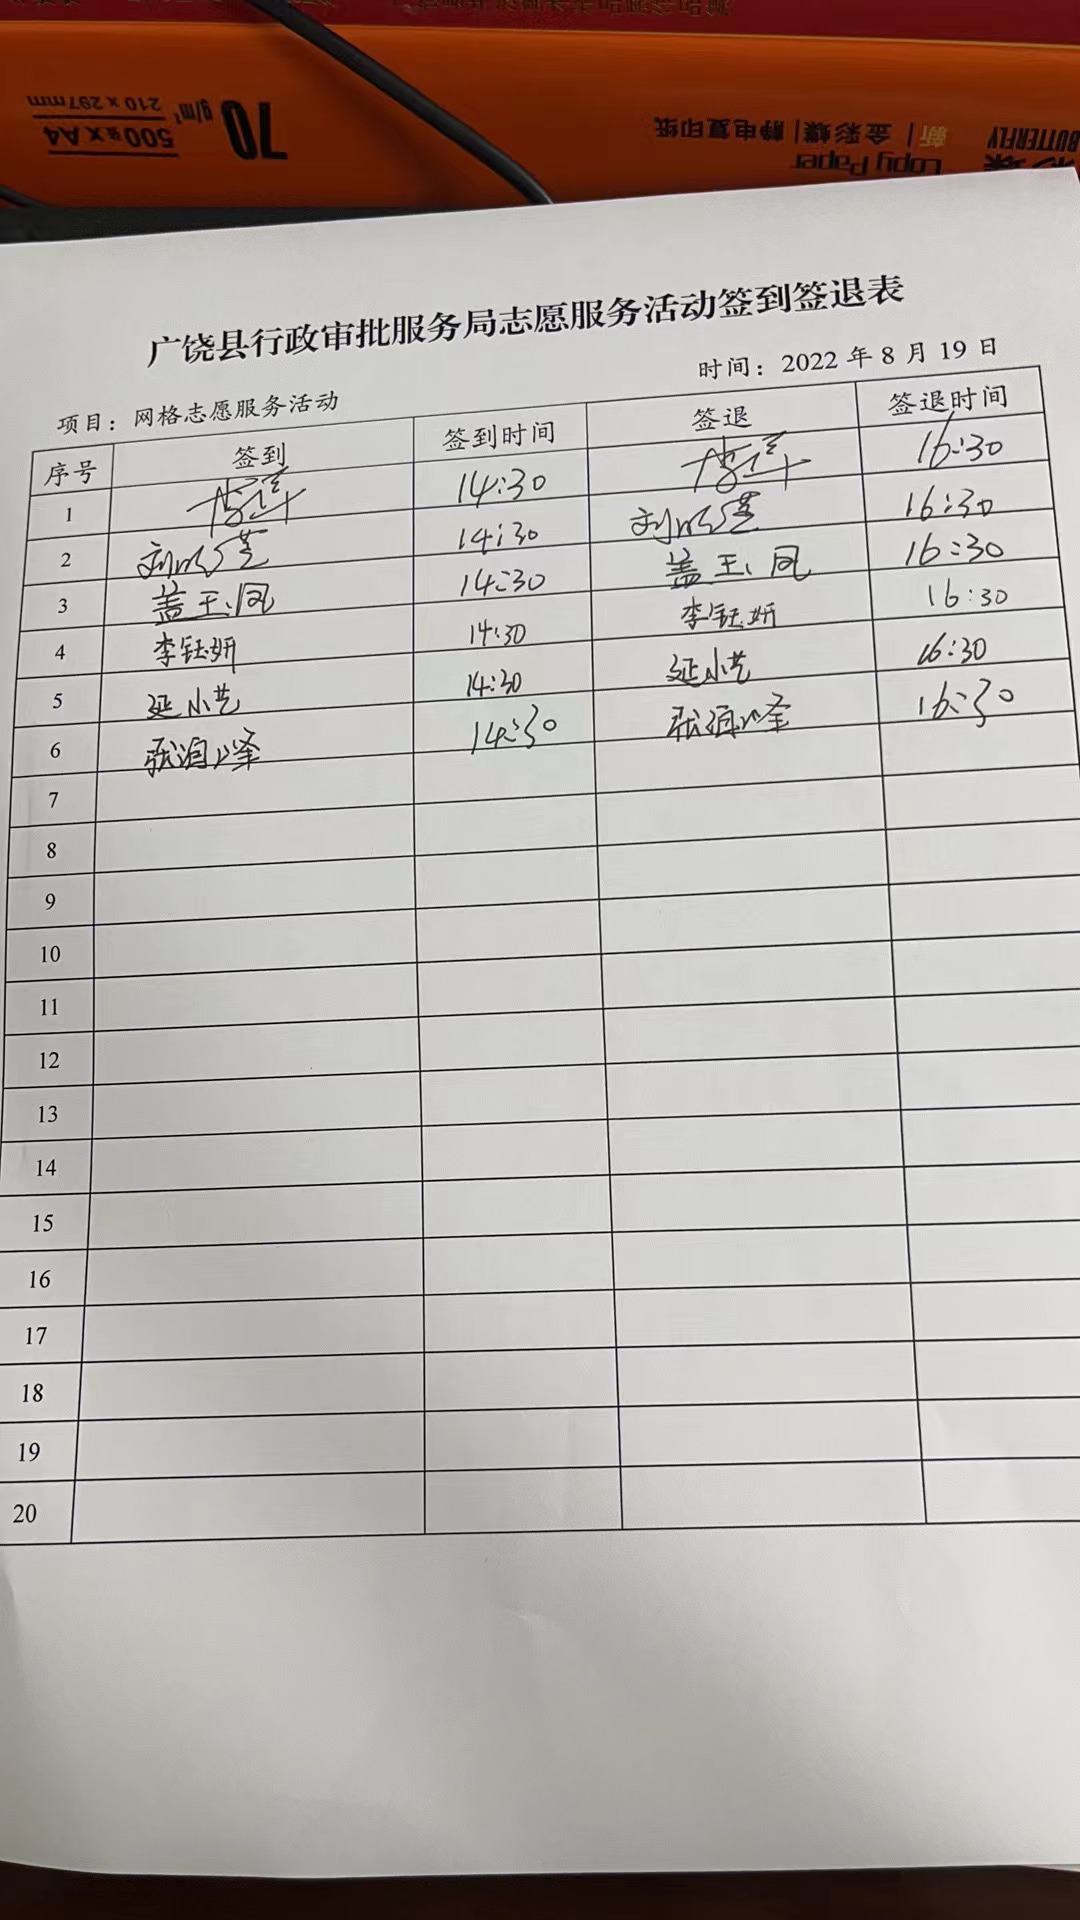 70 g/m²
500g X A4
210 x 297mm
BUTTERFLY
新 | 金彩蝶 | 静电复印纸
Copy Paper
广饶县行政审批服务局志愿服务活动签到签退表
项目：网格志愿服务活动 时间：2022 年 8 月 19 日
序号 签到 签到时间 签退 签退时间
1 14:30 16:30
2 14:30 16:30
3 盖玉凤 14:30 盖玉凤 16:30
4 李钰妍 14:30 李钰妍 16:30
5 延小艺 14:30 延小艺 16:30
6 张润峰 14:30 张润峰 16:30
7
8
9
10
11
12
13
14
15
16
17
18
19
20